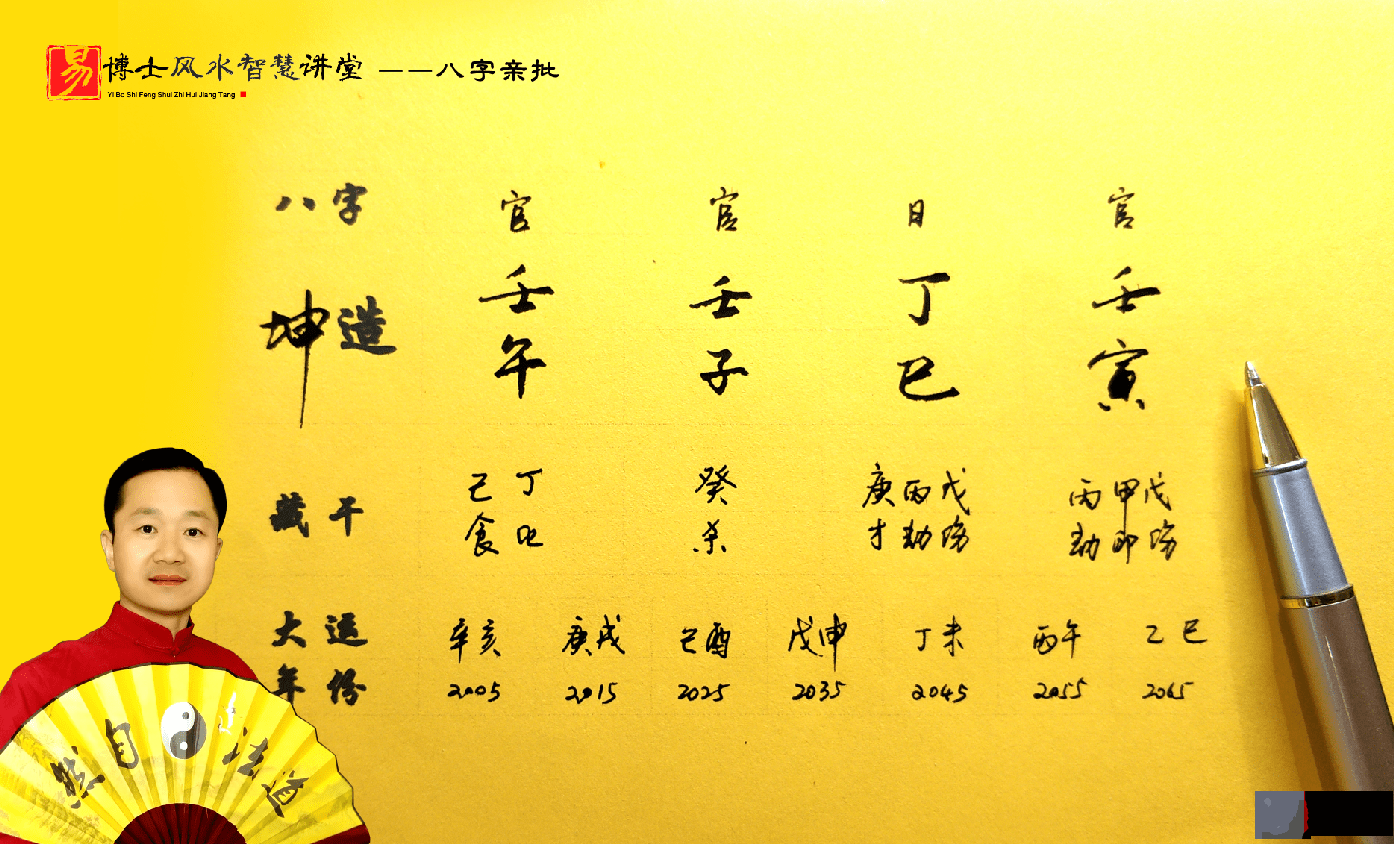 易 博士风水智慧讲堂 ——八字亲批
Yi Bo Shi Feng Shui Zhi Hui Jiang Tang
八字 官 官 日 官
坤造 壬 壬 丁 壬
午 子 巳 寅
藏干 己 丁 癸 庚 丙 戊 丙 甲 戊
食 比 杀 才 劫 伤 劫 印 伤
大运 辛亥 庚戌 己酉 戊申 丁未 丙午 乙巳
年份 2005 2015 2025 2035 2045 2055 2065
道法自然